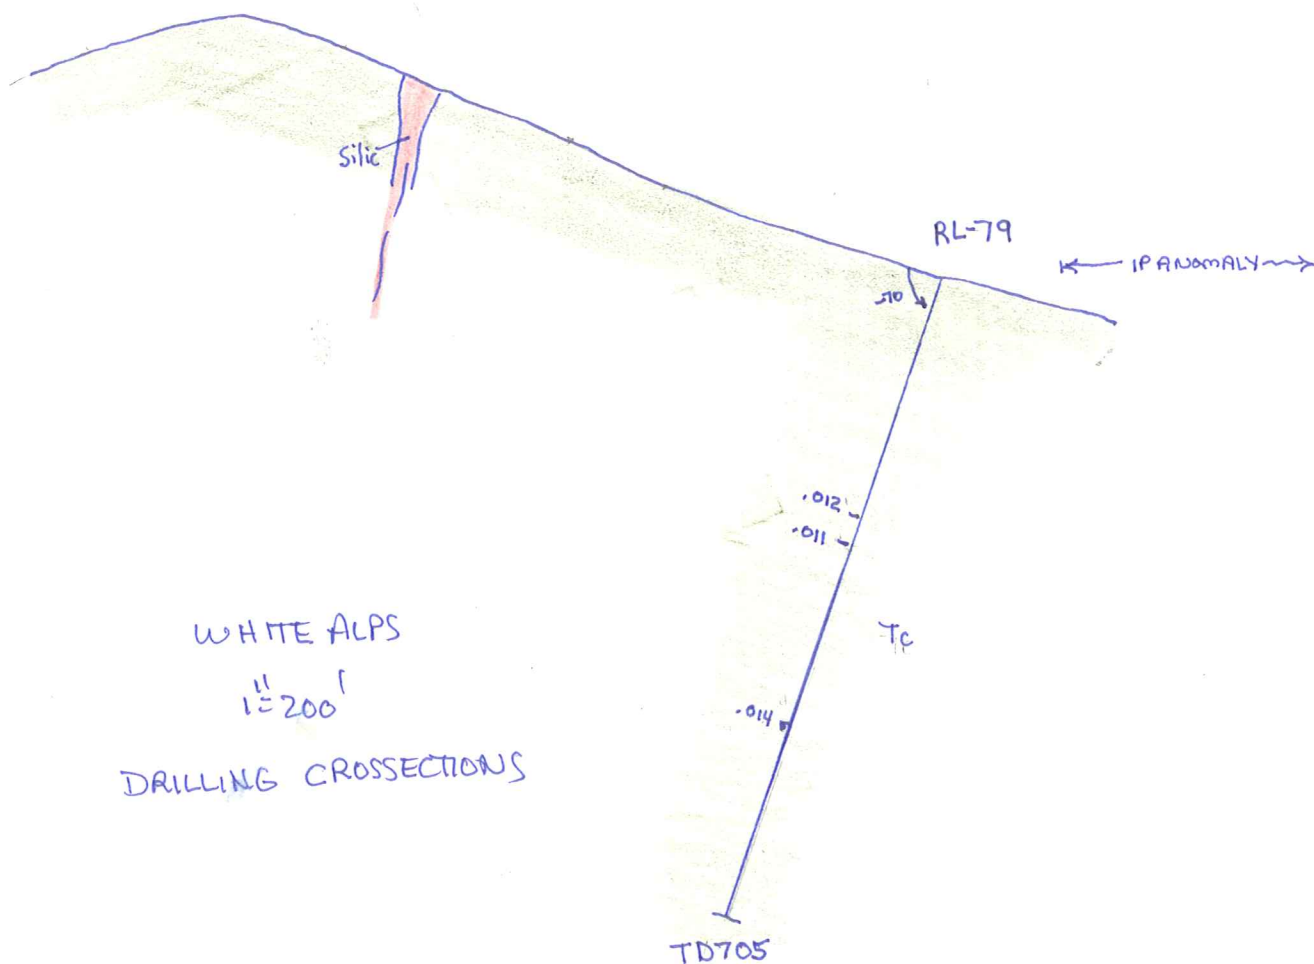 Silic
RL-79
IP ANOMALY
-70
.012
.011
Tc
WHITE ALPS
1"=200'
.014
DRILLING CROSSECTIONS
TD705